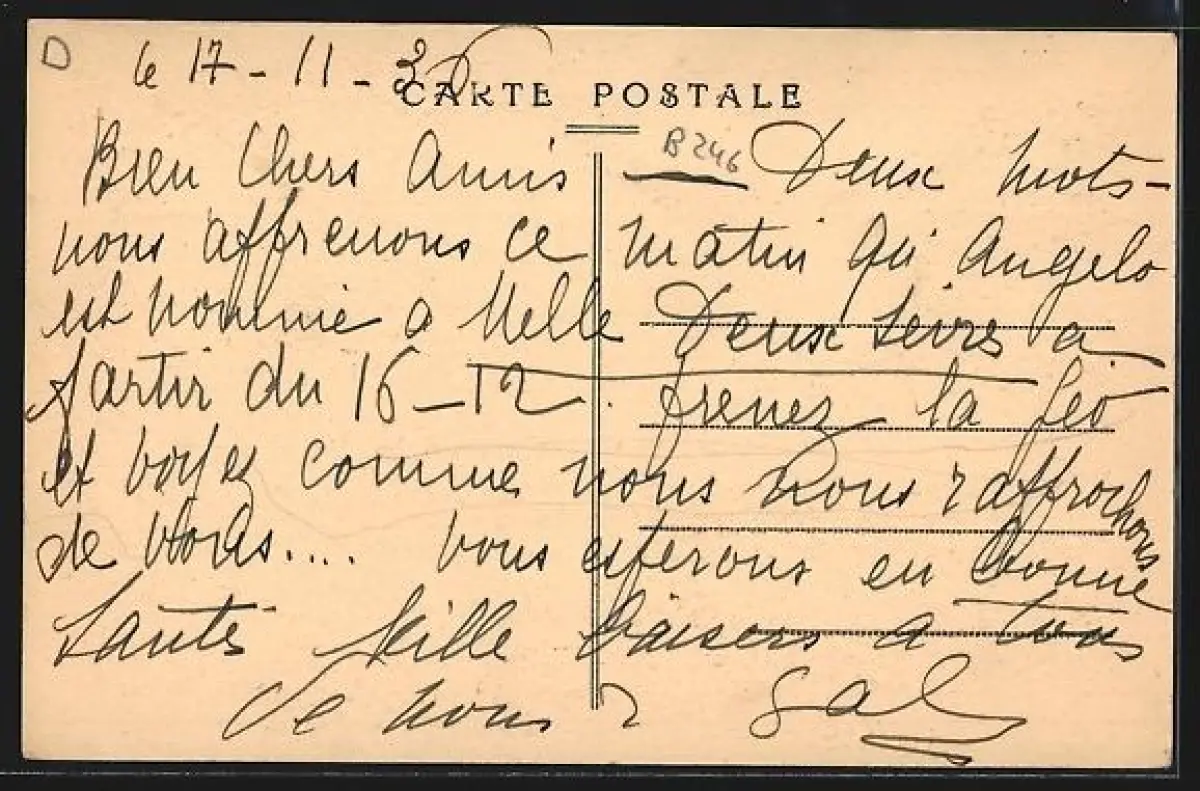 D
le 17-11-3
CARTE POSTALE
B 246
Bien Chers Amis Deux mots-
nous apprenons ce matin qu'Angelo
est nommé a Melle Deux Sèvres a
partir du 16-12. prenez la Géo
et voyez comme nous nous rapprochons
de vous.... vous esperons en bonne
Santé Mille baisers a tous
de nous 2 Gal